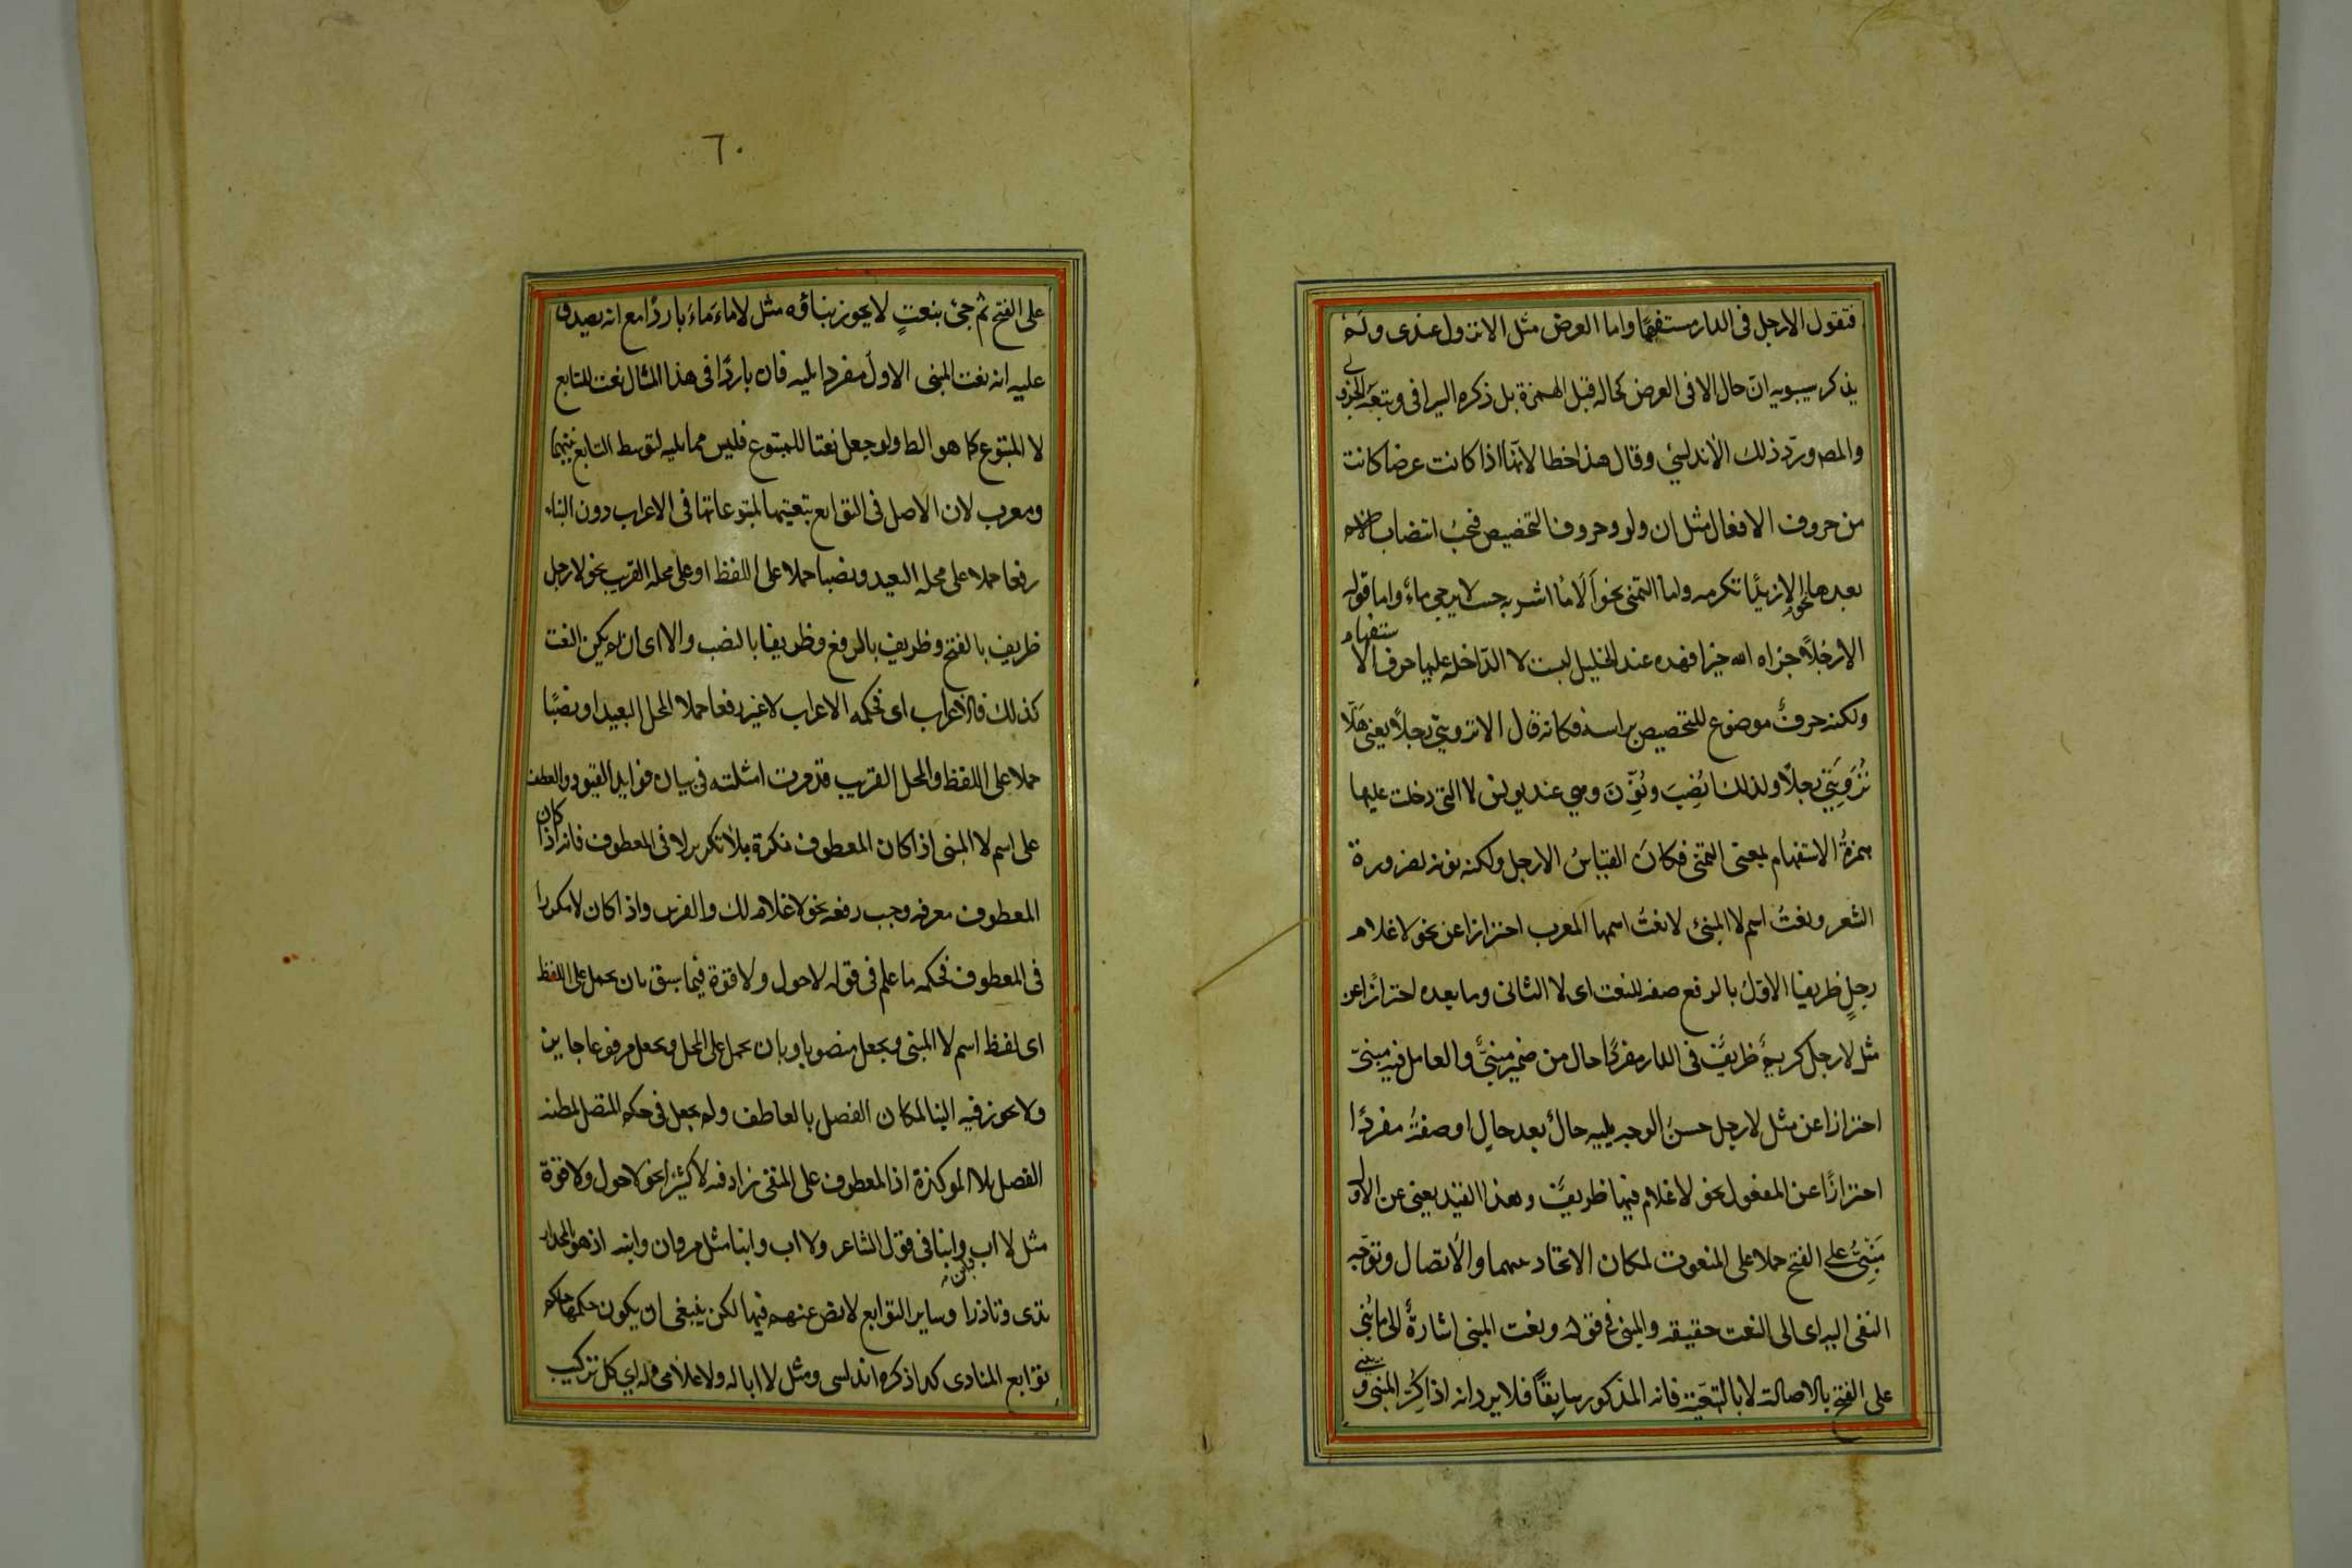 فتقول الا رجل فى الدار مستفهمًا واما العرض مثل الا تنزول عندى ولم
يذكر سيبويه انّ حال الا فى العرض كحاله قبل الهمزة بل ذكره السيرافى وتبعه الجزولى
والمصـ وردّ ذلك الاندلسى وقال هذا خطا لانّها اذا كانت عرضا كانت
من حروف الافعال مثل ان ولو وحروف التحضيض فيجب انتصاب الاسم
بعدها نحو الا زيدًا تكرمه واما التمنى نحو اَلَا مُا اشربه حيث لا يرجى ماءً واما قوله
الا رَجُلاً جزاه الله خيرا فهذه عند الخليل ليست لا الدّاخلة عليها حرف الاستفهام
ولكنه حرفٌ موضوع للتحضيض براسه فكانه قال الا تروننى رجلاً يعنى هَلّا
تُرَوِنَنى رجلًا ولذلك نُصِبَ ونُوِّنَ وهي عند يونس لا التى دخلت عليها
همزةُ الاستفهام بمعنى التمنّى فكانَ القياسُ الا رجل ولكنه نونه لضرورة
الشعر ونعتُ اسم لا المبنىّ لا نعتُ اسمها المعرب احترازا عن نحو لا غلام
رجلٍ ظريفا الاوّلُ بالرفع صفة للنعت اى لا الثانى وما بعده احترازًا عن
مثل لا رجل كريمٌ ظريفٌ فى الدار مفردًا حال من ضمير مبنىٌّ والعامل فيه مبنىّ
احترازا عن مثل لا رجل حسنُ الوجه يليه حالٌ بعد حالٍ او صفةُ مفردًا
احترازًا عن المفعول نحو لا غلام فيها ظريفٌ وهذا القيد يغنى عن الاول
مَبْنِىٌّ على الفتح حملا على المنعوت لمكان الاتحاد بينهما والاتصال وتوجّه
النفى اليه اى الى النعت حقيقة والمبنى فى قوله ونعت المبنى اشارةٌ الى ما بُنى
على الفتح بالاصالة لا بالتبعيّة فانه المذكور سابقاً فلا يرد انه اذا كُرِّر المبنى وبنى
٦٠
على الفتح ثم جئ بنعتٍ لا يجوز بناؤه مثل لا ماءَ ماءَ باردًا مع انه يصدق
عليه انه نعت المبنى الاول مفردا يليه فان باردًا فى هذا المثال نعت للتابع
لا المتبوع كما هو الظ ولو جعل نعتا للمتبوع فليس مما يليه لتوسط التابع بينهما
ومعرب لان الاصل فى التوابع تبعيتها لمتبوعاتها فى الاعراب دون البناء
رفعا حملا على محله البعيد ونصبا حملا على اللفظ او على محله القريب نحو لا رجل
ظريف بالفتح وظريف بالرفع وظريفا بالنصب والا اى ان لم يكن النعت
كذلك فالاعراب اى فحكمه الاعراب لا غير رفعا حملا المحل البعيد او نصبًا
حملا على اللفظ والمحل القريب قد مرت امثلته فى بيان فوايد القيود والعطف
على اسم لا المبنى اذا كان المعطوف نكرة بلا تكرير لا فى المعطوف فانه اذا كان
المعطوف معرفة وجب رفعه نحو لا غلام لك والفرس واذا كان لا مكررا
فى المعطوف فحكمه ما علم فى قوله لا حول ولا قوة فيما سبق بان يحمل على اللفظ
اى لفظ اسم لا المبنى ويجعل منصوبا وبان يحمل على المحل ويجعل مرفوعا جايز
ولا يجوز فيه البنا لمكان الفصل بالعاطف ولم يجعل فى حكم المتصل لمظنة
الفصل بلا الموكدة اذ المعطوف على المنفى يزاد فيه لا كثيرًا نحو لا حول ولا قوة
مثل لا اب وابنا فى قول الشاعر ولا اب وابنا مثل مروان وابنه اذ هو بالمجد
تردى وتازرا وساير التوابع لا نص عنهم فيها لكن ينبغى ان يكون حكمها حكم
توابع المنادى كذا ذكره اندلسى ومثل لا ابا له ولا غلامى له اي كل تركيب